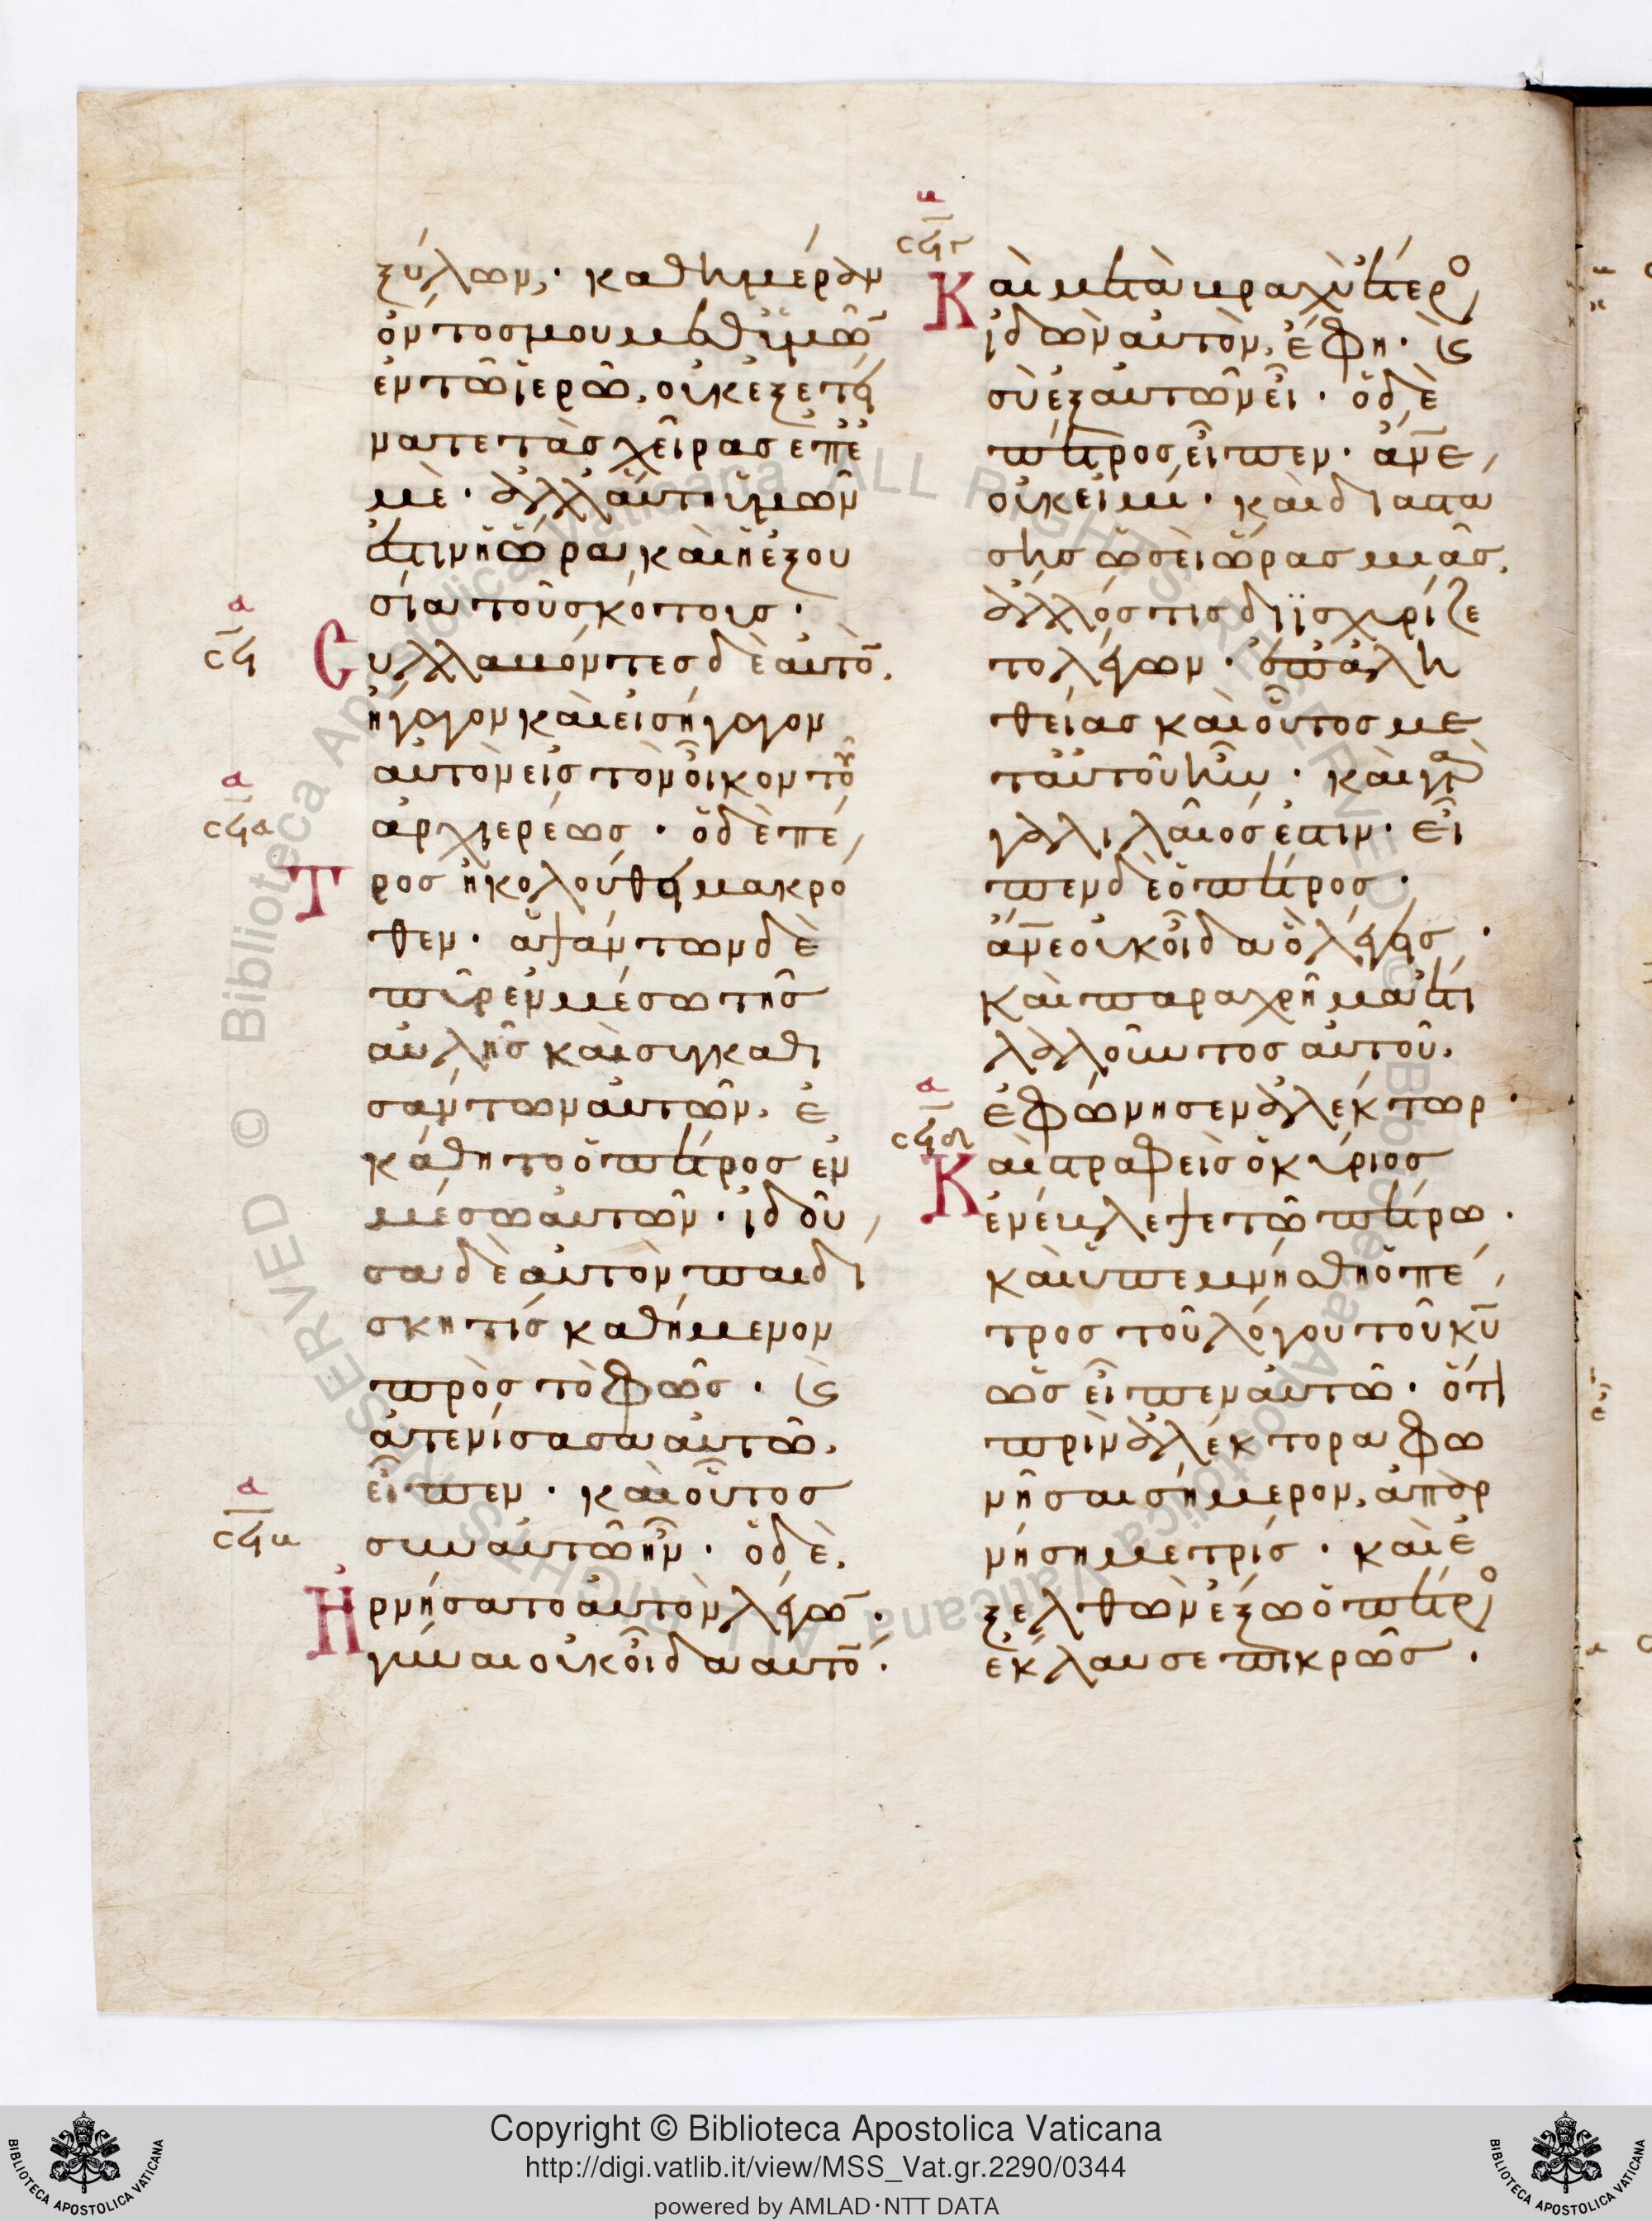 ξύλων, · καθημέραν
ὄντος μου μεθ ὑμῶ̅
ἐν τῶ ἱερῶ, οὐκ ἐξετεί
νατε τὰς χεῖρας ἐπ ἐ
μὲ · ἀλλ αὕτη ὑμῶν
ἐστιν ἡ ὥρα, καὶ ἡ ἐξου
σία τοῦ σκότους ·
α
σϟ
Συλλαβόντες δὲ αὐτὸ̅,
ἤγαγον καὶ εἰσήγαγον
αὐτὸν εἰς τὸν οἶκον τοῦ
ἀρχιερέως · ὁ δὲ πέ
α
σϟα
Τρος ἠκολούθει μακρο
θεν · ἁψάντων δὲ
πῦρ ἐν μέσω τῆς
αὐλῆς καὶ συγκαθι
σάντων αὐτῶν, ἐ
κάθητο ὁ πέτρος ἐν
μέσω αὐτῶν · ἰδοῦ
σα δὲ αὐτὸν παιδί
σκη τίς καθήμενον
πρὸς τὸ φῶς · κὶ
ἀτενίσασα αὐτῶ,
εἶπεν · καὶ οὗτος
σὺν αὐτῶ ἦν · ὁ δὲ,
α
σϟβ
Ἠρνήσατο αὐτὸν λέγω̅ ·
γύναι οὐκ οἶδα αὐτό̅ ·
β
σϟγ
Καὶ μετὰ βραχὺ ἕτερο
ἰδὼν αὐτὸν, ἔφη · κὶ
σὺ ἐξ αὐτῶν εἶ · ὁ δὲ
πέτρος, εἶπεν · α̅ν̅ε,
οὐκ εἰμί · καὶ διαστά
σης ὡσεὶ ὥρας μιᾶς,
ἄλλός τις διϊσχυρίζε
το λέγων · ἐπ ἀλη
θείας καὶ οὗτος με
τ αὐτοῦ ἦν · καὶ γὰρ
γαλιλαῖός ἐστιν · εἶ
πεν δὲ ὁ πέτρος ·
α̅ν̅ε οὐκ οἶδα ὃ λέγεις ·
καὶ παραχρῆμα ἔτι
λαλοῦντος αὐτοῦ,
ἐφώνησεν ἀλέκτωρ ·
α
σϟδ
Καὶ στραφεὶς ὁ κύριος
ἐνέβλεψε τῶ πέτρω ·
καὶ ὑπεμνήσθη ὁ πέ
τρος τοῦ λόγου τοῦ κ̅υ̅
ὡς εἶπεν αὐτῶ · ὅτι
πρὶν ἀλέκτορα φω
νῆσαι σήμερον, ἀπαρ
νήση με τρίς · καὶ ἐ
ξελθὼν ἔξω ὁ πέτρο
ἔκλαυσε πικρῶς ·
Copyright © Biblioteca Apostolica Vaticana
http://digi.vatlib.it/view/MSS_Vat.gr.2290/0344
powered by AMLAD·NTT DATA